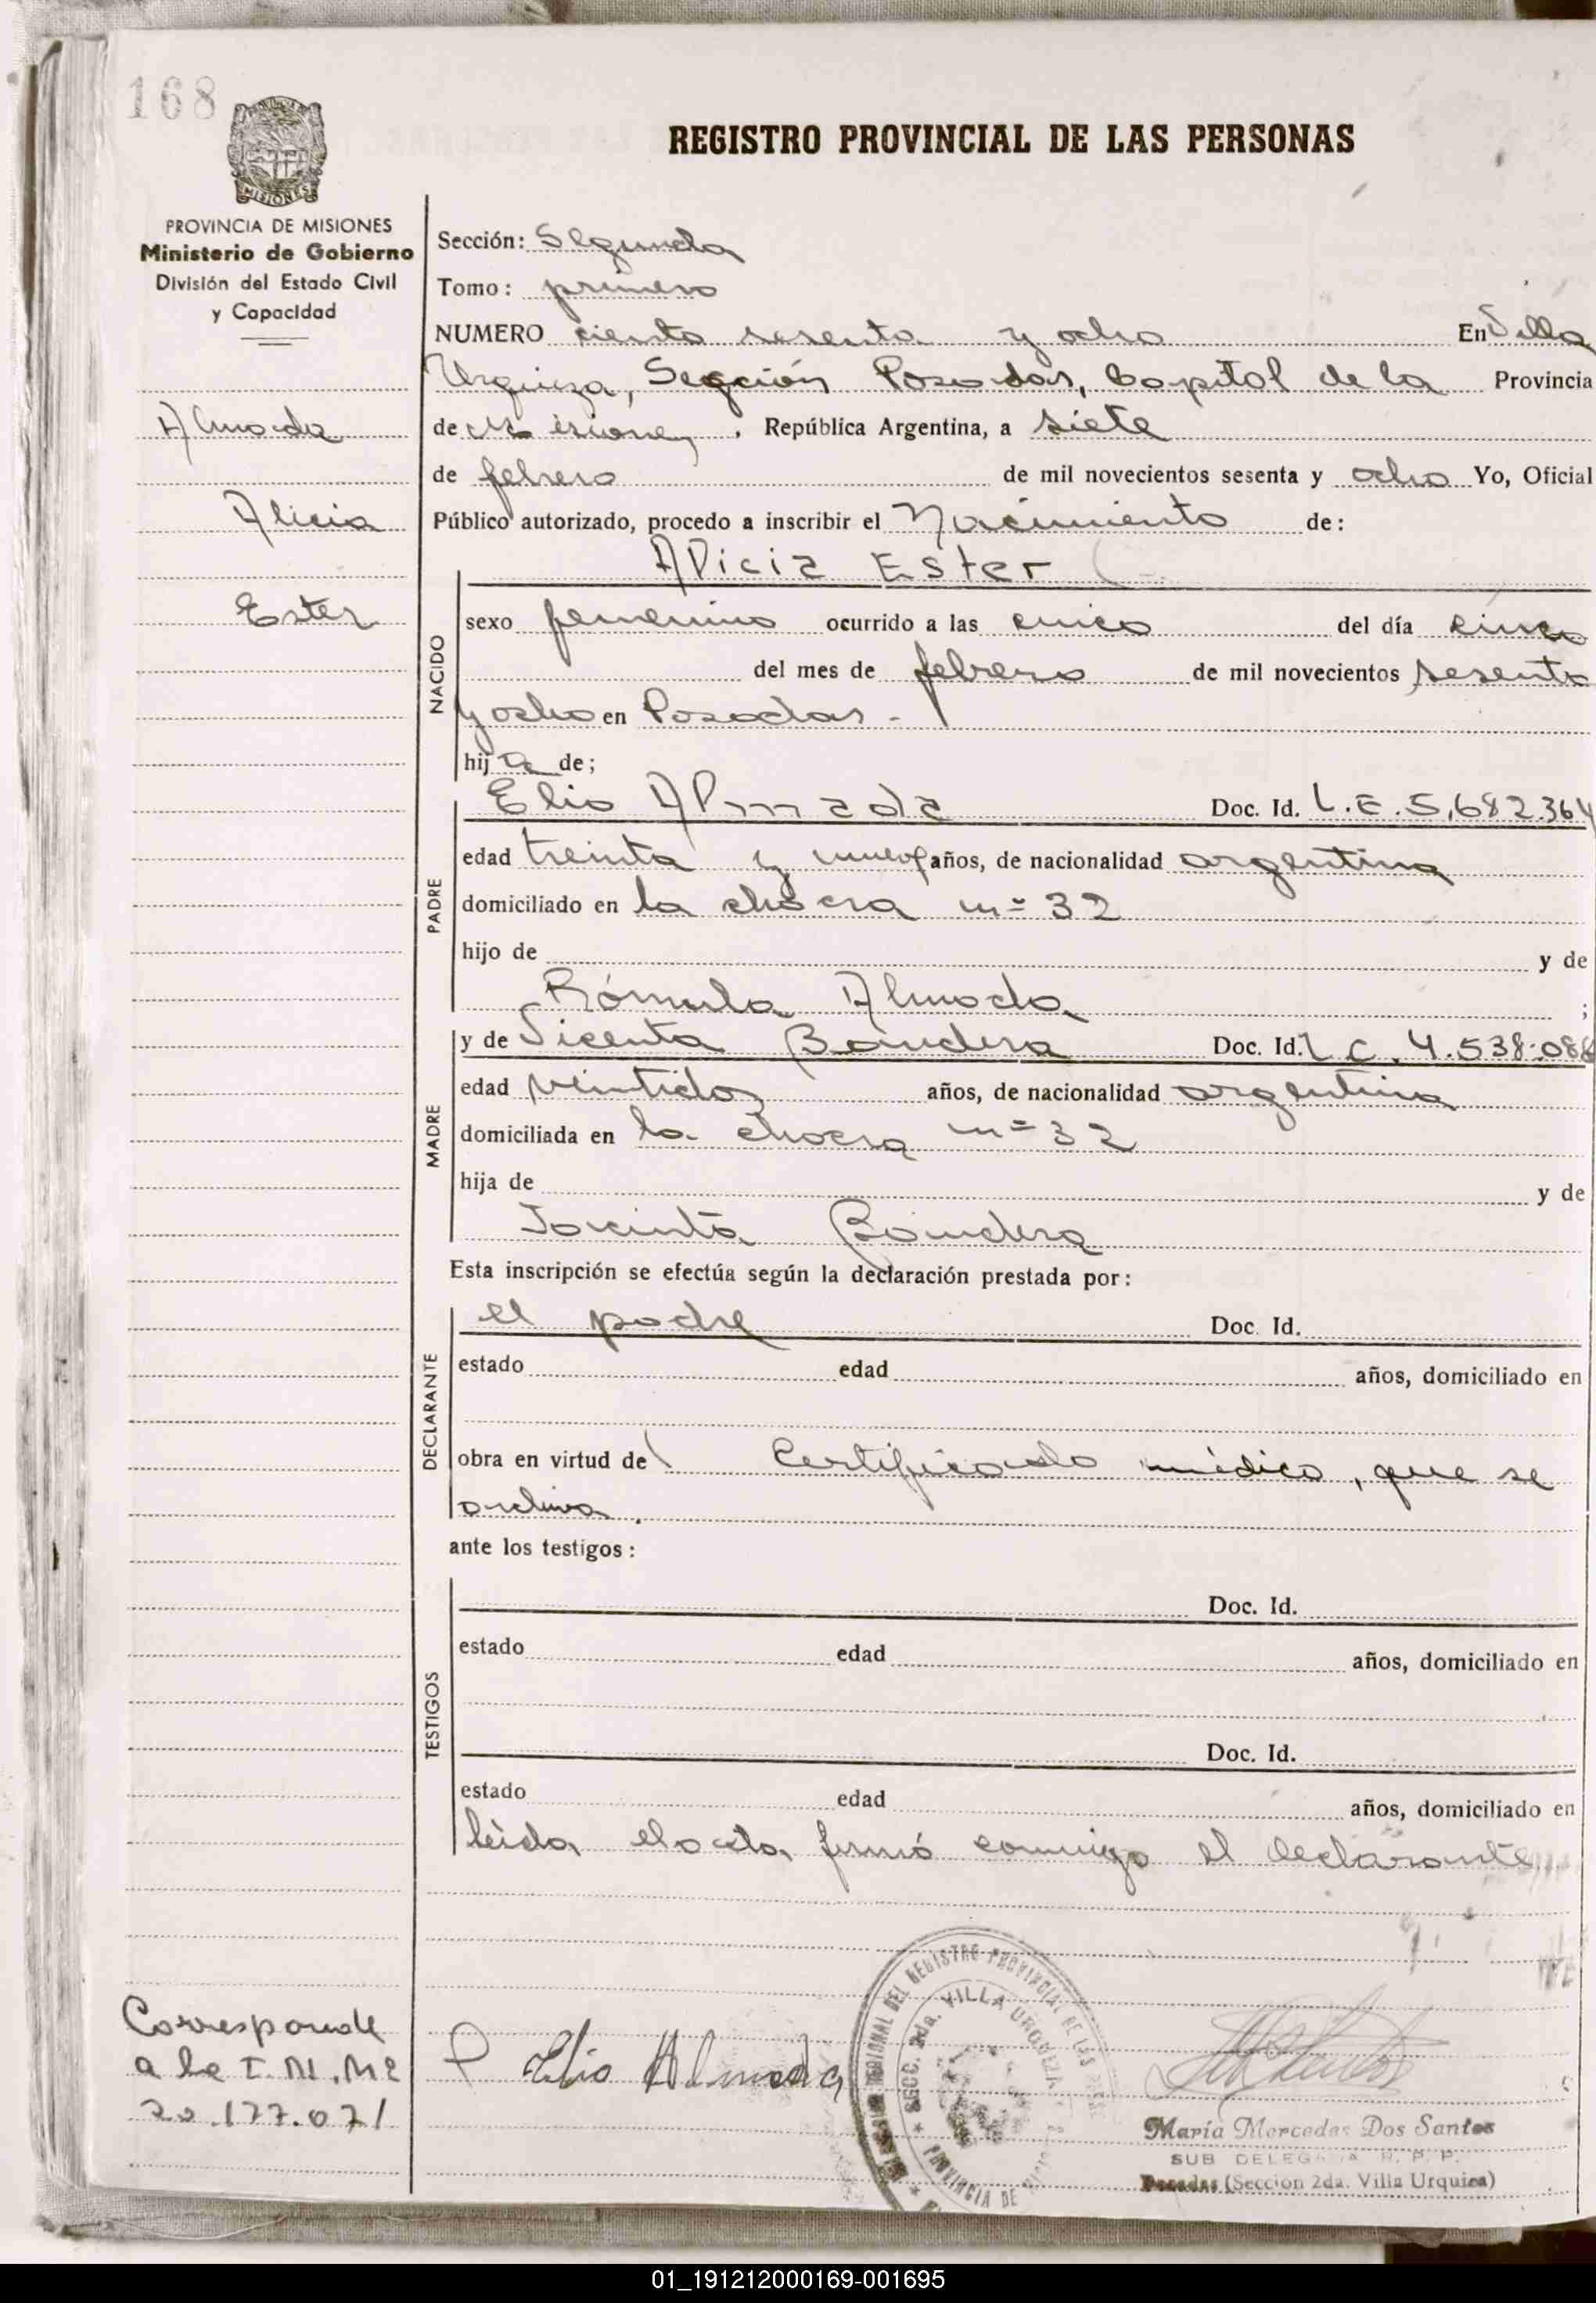 168
MISIONES
PROVINCIA DE MISIONES
Ministerio de Gobierno
División del Estado Civil
y Capacidad
Almada
Alicia
Ester
REGISTRO PROVINCIAL DE LAS PERSONAS
Sección: Segunda
Tomo: primero
NUMERO ciento sesenta y ocho En Villa
Urquiza, Sección Posadas, Capital de la Provincia
de Misiones, República Argentina, a siete
de febrero de mil novecientos sesenta y ocho Yo, Oficial
Público autorizado, procedo a inscribir el Nacimiento de:
Alicia Ester
NACIDO
sexo femenino ocurrido a las cinco del día cinco
del mes de febrero de mil novecientos sesenta
y ocho en Posadas.-
hija de;
PADRE
Elio Almada Doc. Id. L.E. 5.682.364
edad treinta y nueve años, de nacionalidad argentina
domiciliado en la chacra nº 32
hijo de y de
Rómula Almada ;
MADRE
y de Vicenta Bandera Doc. Id. L.C. 4.538.088
edad veintidos años, de nacionalidad argentina
domiciliada en la chacra nº 32
hija de y de
Jacinta Bandera
Esta inscripción se efectúa según la declaración prestada por:
DECLARANTE
el padre Doc. Id.
estado edad años, domiciliado en
obra en virtud de Certificado médico, que se
archiva.
ante los testigos:
TESTIGOS
Doc. Id.
estado edad años, domiciliado en
Doc. Id.
estado edad años, domiciliado en
leída el acta, firmó conmigo el declarante
Corresponde
a la I. M. Nº
20.177.071
Elio Almada
REGIONAL DEL REGISTRO PROVINCIAL DE LAS
SECC. 2da. VILLA URQUIZA
PROVINCIA DE
María Mercedes Dos Santos
SUB DELEGADA R. P. P.
Posadas (Sección 2da. Villa Urquiza)
01_191212000169-001695